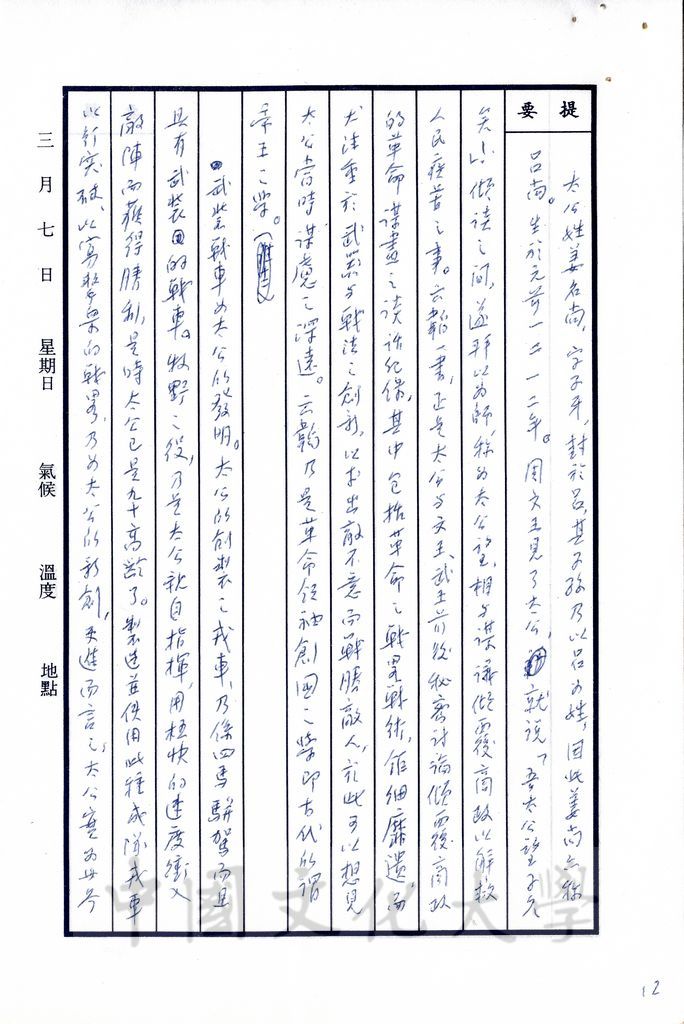 提要
太公姓姜名尚,字子牙,封於呂,其子孫乃以呂為姓,因此姜尚亦称
呂尚。生於元前一二一二年。周文王見了太公,就說「吾太公望子久
矣」,傾談之間,遂拜以為師,称為太公望,相与謀議傾覆商政以解救
人民疾苦之事。六韜一書,正是太公与文王、武王前後秘密討論傾覆商政
的革命謀畫之談話紀錄,其中包括革命之戰畧戰術,詳細靡遺,而
尤注重於武器与戰法之創新,以求出敵不意而戰勝敵人,於此可以想見
太公當時謀慮之深遠。六韜乃是革命領袖創國之學即古代所謂
帝王之學。
武裝戰車為太公所發明。太公所創製之戎車,乃係四馬駢駕而且
具有武裝的戰車。牧野之役,乃是太公親自指揮,用極快的速度衝入
敵陣而獲得勝利,是時太公已是九十高齡了。製造並使用此種成隊戎車
以行突破、以寡擊眾的戰畧,乃為太公所新創,更進而言之,太公實為世界
三月七日 星期日 氣候 溫度 地點
中國文化大學
12